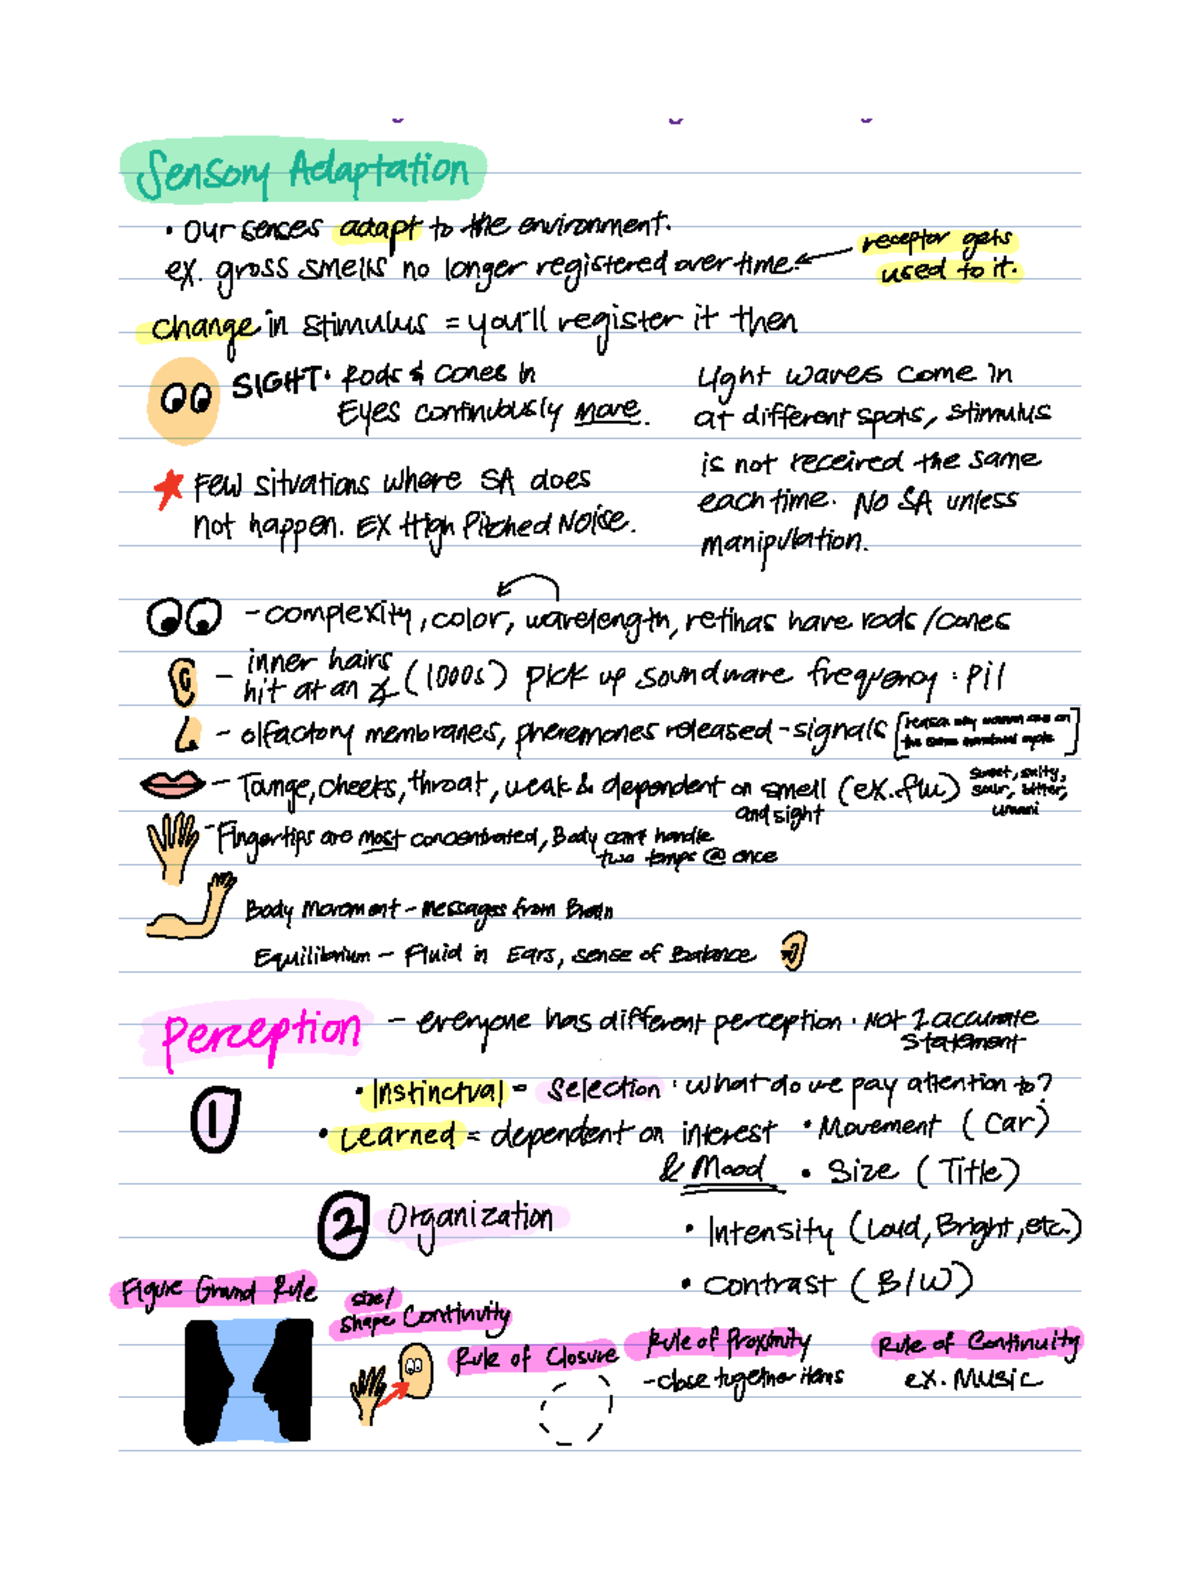 Sensory Adaptation
• Our senses adapt to the environment.
ex. gross smells no longer registered over time.
receptor gets
used to it.
change in stimulus = you'll register it then
SIGHT: Rods & Cones in
Eyes continuously move.
Light waves come in
at different spots, stimulus
is not received the same
each time. No SA unless
manipulation.
Few situations where SA does
not happen. EX High Pitched Noise.
- complexity, color, wavelength, retinas have rods/cones
- inner hairs
hit at an ∠ (1000s) pick up soundwave frequency: pit
- olfactory membranes, pheremones released - signals
[reason why women are on
the same menstrual cycle]
- Tounge, cheeks, throat, weak & dependent on smell (ex. flu)
and sight
sweet, salty,
sour, bitter,
umami
- Fingertips are most concentrated, Body can't handle
two temps @ once
Body Movement - Messages from Brain
Equilibrium - Fluid in Ears, sense of Balance
Perception - everyone has different perception. Not 1 accurate
statement
1
• Instinctual = Selection: what do we pay attention to?
• Learned = dependent on interest
& Mood
• Movement (Car)
• Size (Title)
• Intensity (Loud, Bright, etc.)
• Contrast (B/W)
2 Organization
Figure Ground Rule
size/
shape Continuity
Rule of Closure
Rule of Proximity
- close together items
Rule of Continuity
ex. Music